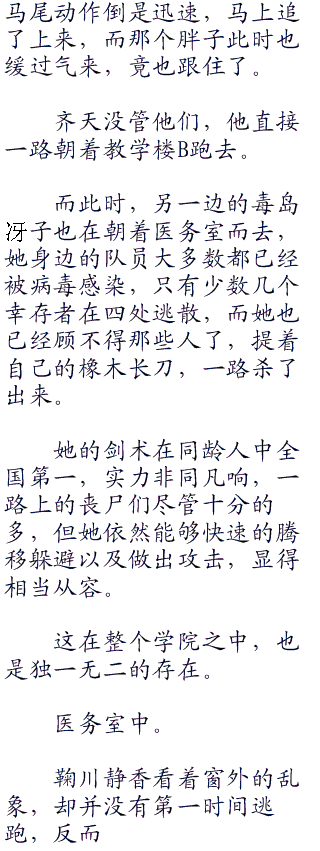 马尾动作倒是迅速，马上追
了上来，而那个胖子此时也
缓过气来，竟也跟住了。
齐天没管他们，他直接
一路朝着教学楼B跑去。
而此时，另一边的毒岛
冴子也在朝着医务室而去，
她身边的队员大多数都已经
被病毒感染，只有少数几个
幸存者在四处逃散，而她也
已经顾不得那些人了，提着
自己的橡木长刀，一路杀了
出来。
她的剑术在同龄人中全
国第一，实力非同凡响，一
路上的丧尸们尽管十分的
多，但她依然能够快速的腾
移躲避以及做出攻击，显得
相当从容。
这在整个学院之中，也
是独一无二的存在。
医务室中。
鞠川静香看着窗外的乱
象，却并没有第一时间逃
跑，反而